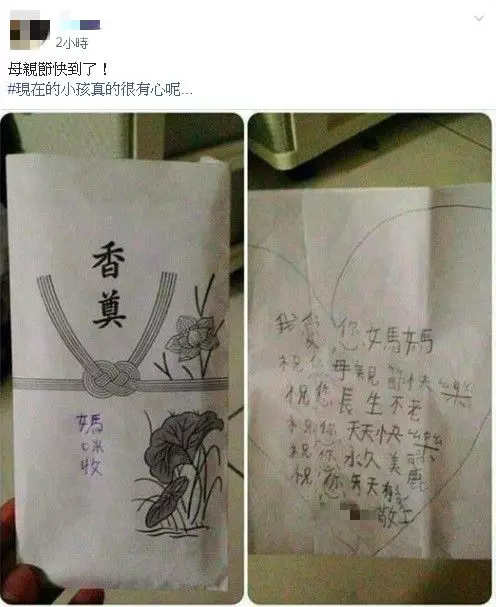 2小時
母親節快到了！
#現在的小孩真的很有心呢...
香奠
媽咪收
我愛您媽媽
祝你母親節快樂
祝您長生不老
祝你天天快樂
祝你永久美麗
祝您天天有錢
敬上